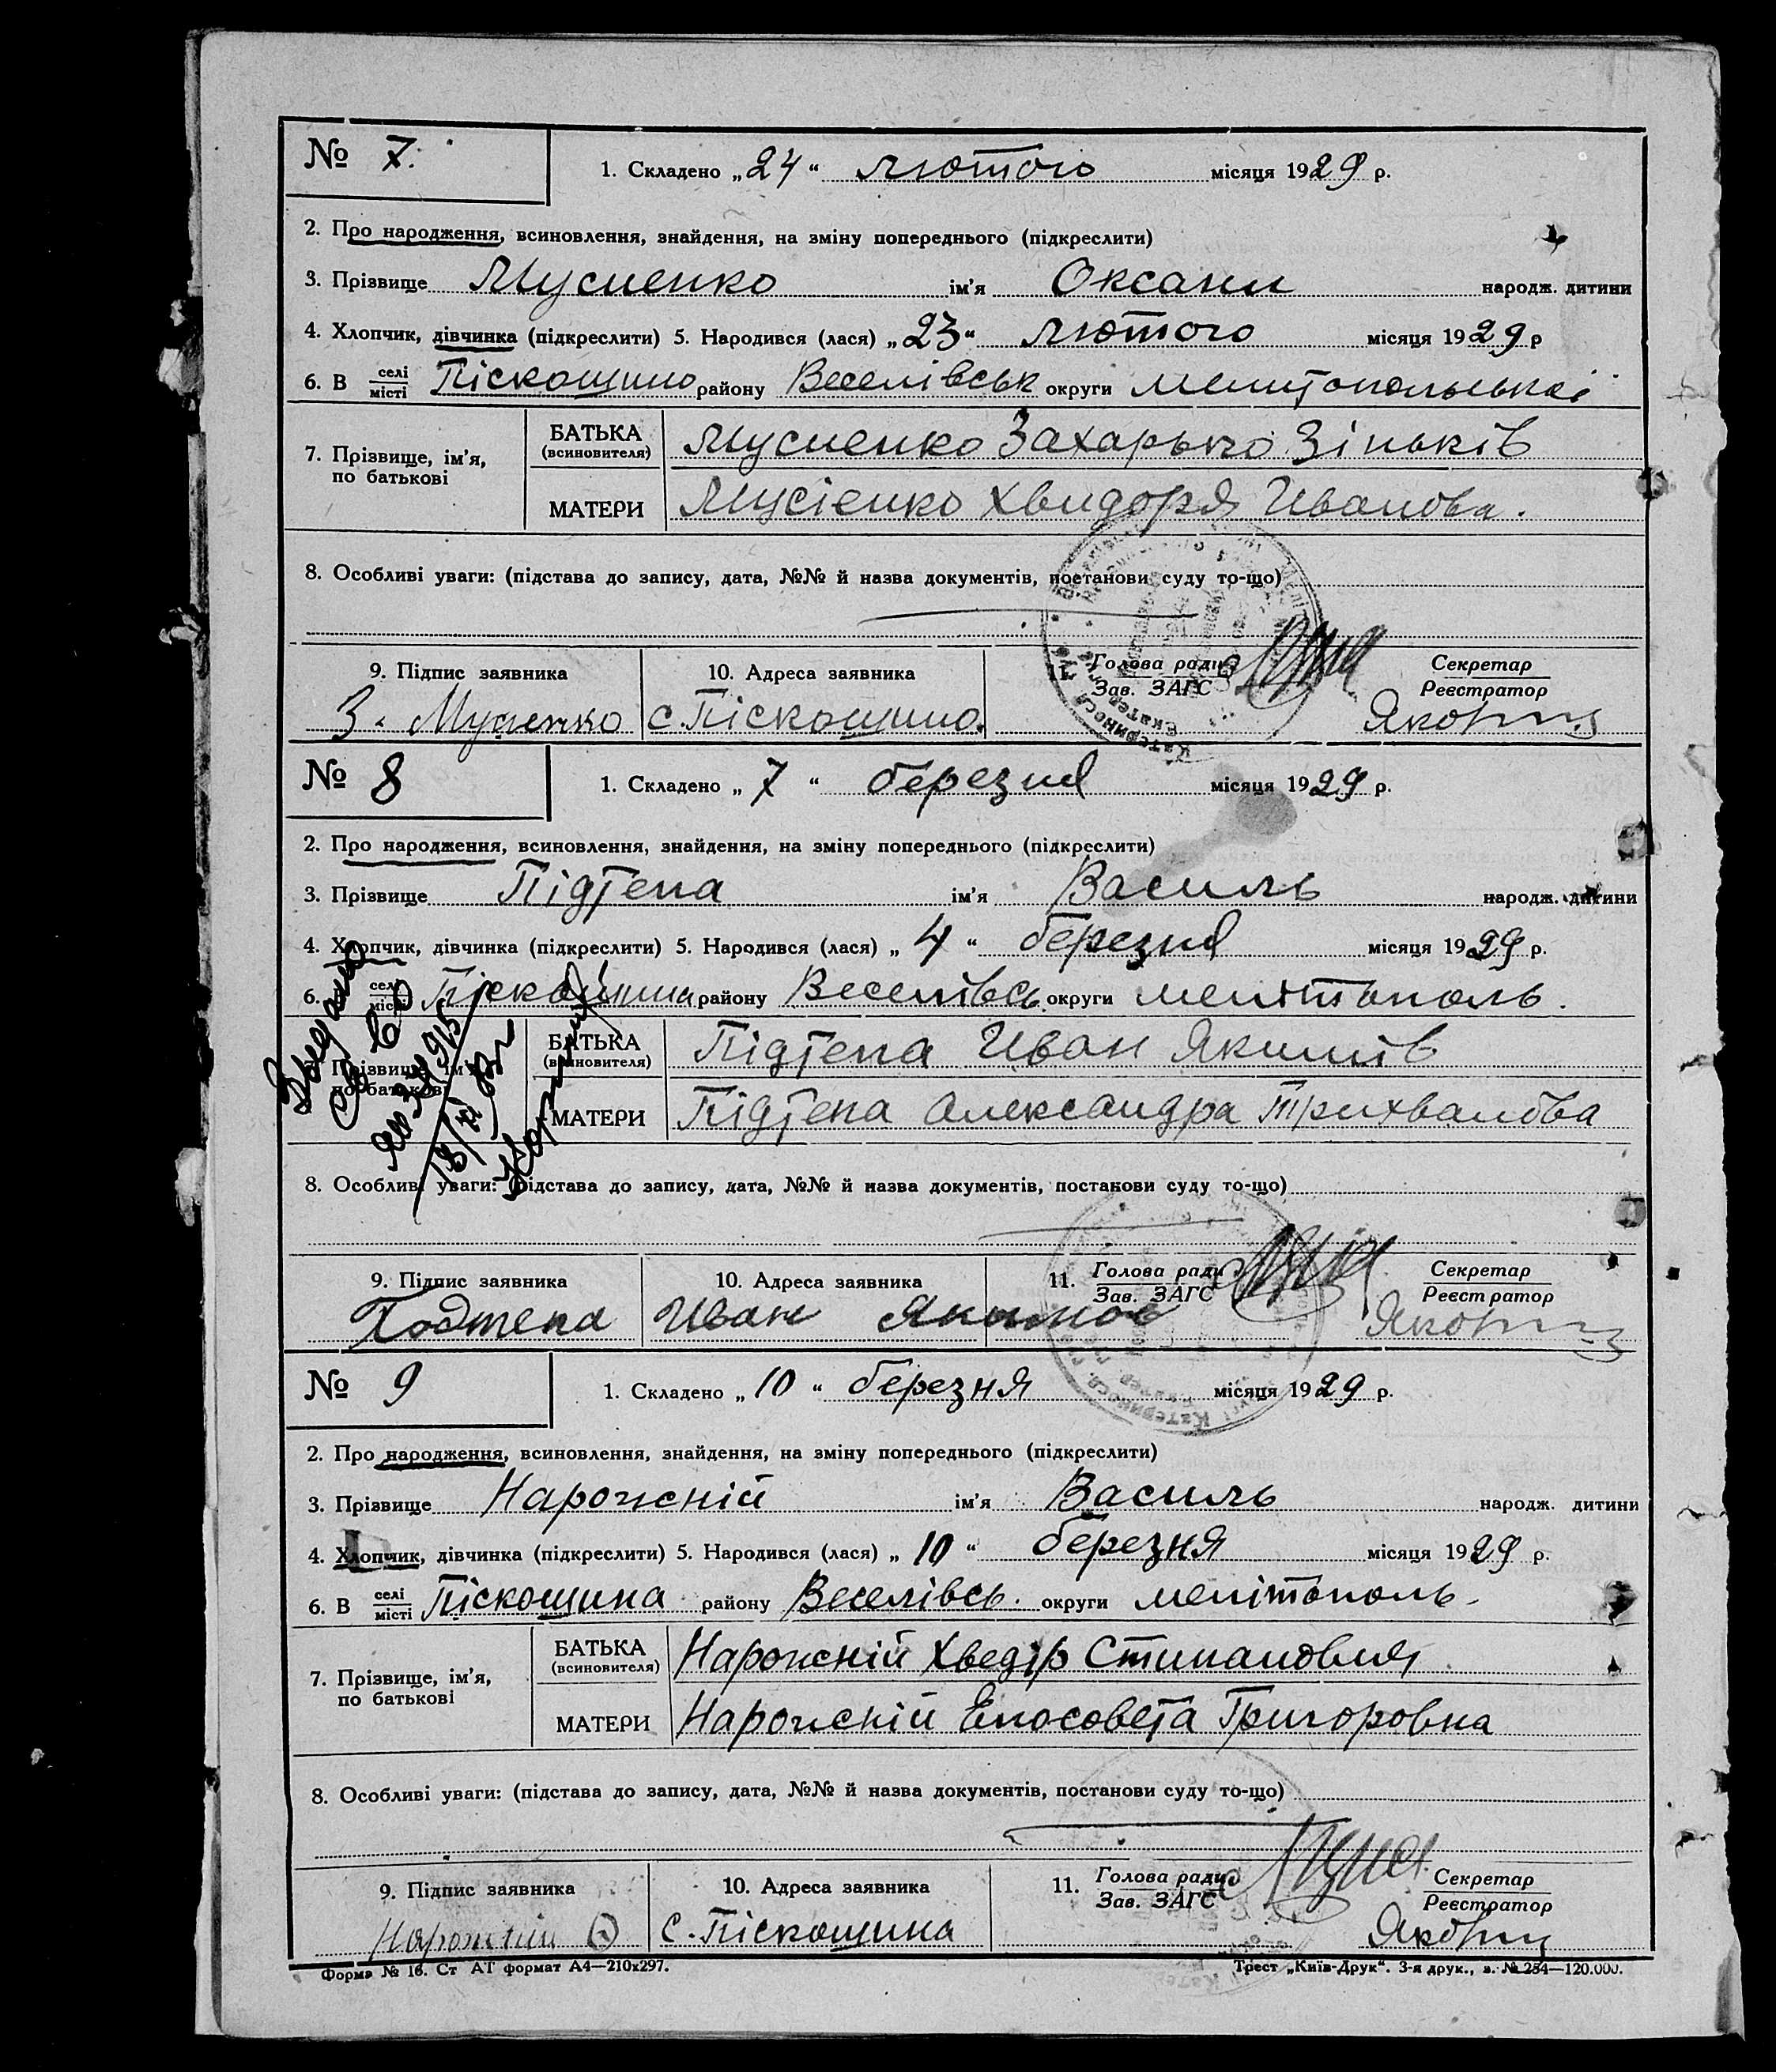 № 7. 1. Складено „24“ лютого місяця 1929 р.
2. Про народження, всиновлення, знайдення, на зміну попереднього (підкреслити)
3. Прізвище Мусиенко ім’я Оксани народж. дитини
4. Хлопчик, дівчинка (підкреслити) 5. Народився (лася) „23“ лютого місяця 1929 р
6. В селі місті Піскошино району Веселівськ округи
7. Прізвище, ім’я, по батькові
БАТЬКА (всиновителя) Мусиенко Захарько Зіньків
МАТЕРИ Мусіенко Хвидоря Иванова.
8. Особливі уваги: (підстава до запису, дата, №№ й назва документів, постанови суду то-що)
9. Підпис заявника 10. Адреса заявника 11. Голова ради Зав. ЗАГС Секретар Реєстратор
З. Мусиенко с. Піскошино.
№ 8 1. Складено „7“ березня місяця 1929 р.
2. Про народження, всиновлення, знайдення, на зміну попереднього (підкреслити)
3. Прізвище Підтепа ім’я Василь народж. дитини
4. Хлопчик, дівчинка (підкреслити) 5. Народився (лася) „4“ березня місяця 1929 р.
6. селі місті Піскошина району Веселівсь округи мелітополь.
Прізвище, ім’я, по батькові
БАТЬКА (всиновителя) Підтепа Иван Якимів
МАТЕРИ Підтепа Александра Трихванова
8. Особливі уваги: (підстава до запису, дата, №№ й назва документів, постанови суду то-що)
9. Підпис заявника 10. Адреса заявника 11. Голова ради Зав. ЗАГС Секретар Реєстратор
Подтепа Иван Якимов
№ 9 1. Складено „10“ березня місяця 1929 р.
2. Про народження, всиновлення, знайдення, на зміну попереднього (підкреслити)
3. Прізвище Нарожній ім’я Василь народж. дитини
4. Хлопчик, дівчинка (підкреслити) 5. Народився (лася) „10“ березня місяця 1929 р.
6. В селі місті Піскошина району Веселівсь. округи мелітополь.
7. Прізвище, ім’я, по батькові
БАТЬКА (всиновителя) Нарожній Хведір
МАТЕРИ Нарожній Елосовета Григоровна
8. Особливі уваги: (підстава до запису, дата, №№ й назва документів, постанови суду то-що)
9. Підпис заявника 10. Адреса заявника 11. Голова ради Зав. ЗАГС Секретар Реєстратор
Нарожній с. Піскошина
Форма № 16. Ст АТ формат А4—210x297. Трест „Київ-Друк“. 3-я друк., з. № 254—120.000.